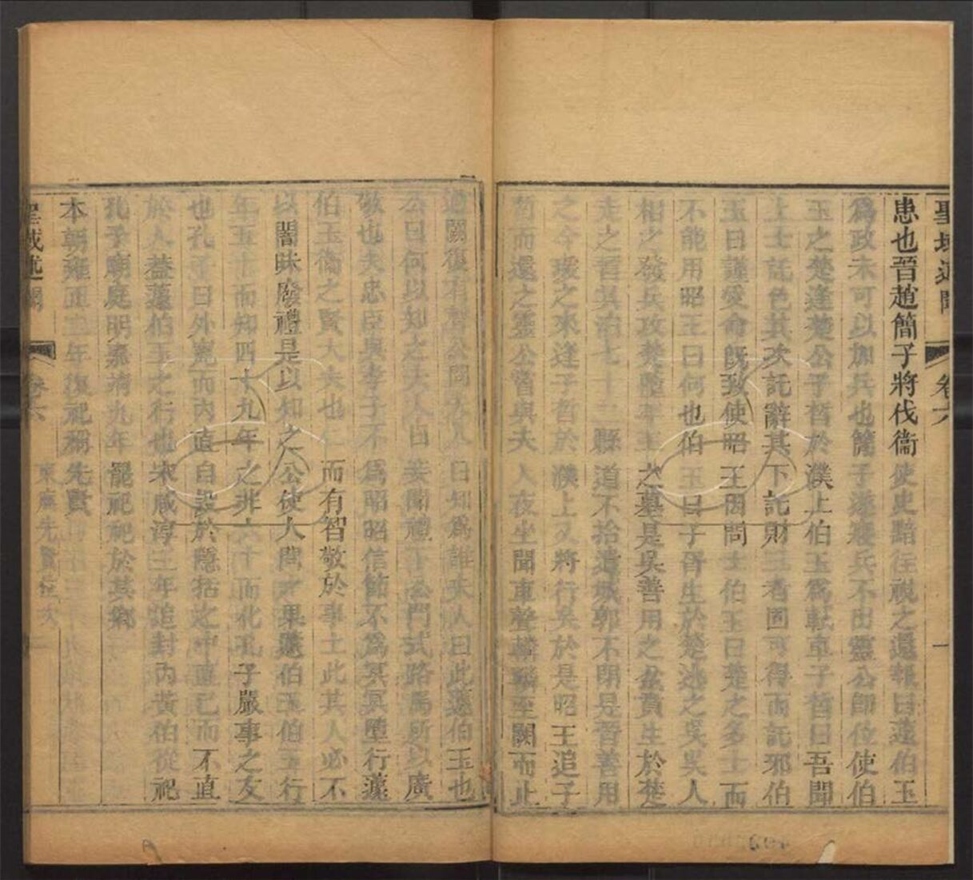 聖域述聞 卷六 一
患也晉趙簡子將伐衞使史黯往視之還報曰蘧伯玉
爲政未可以加兵也簡子遂寢兵不出靈公卽位使伯
玉之楚逢楚公子晳於濮上伯玉爲軾車子晳曰吾聞
上士託色其次託辭其下託財三者固可得而託邪伯
玉曰謹受命旣致使昭王因問士伯玉曰楚之多士而
不能用昭王曰何也伯玉曰子胥生於楚逃之吳吳人
相之發兵攻楚墮平王之墓是吳善用之蚠蕡生於楚
走之晉其治七十二縣道不拾遺城郭不閉是晉善用
之今瑗之來逢子晳於濮上又將行矣於是昭王追子
晳而還之靈公嘗與夫人夜坐聞車聲轔轔至闕而止
過闕復有聲公問夫人曰知爲誰夫人曰此蘧伯玉也
公曰何以知之夫人曰妾聞禮下公門式路馬所以廣
敬也夫忠臣與孝子不爲昭昭信節不爲冥冥墮行蘧
伯玉衞之賢大夫也仁而有智敬於事上此其人必不
以闇昧廢禮是以知之公使人問之果蘧伯玉伯玉行
年五十而知四十九年之非六十而化孔子嚴事之友
也孔子曰外寬而內直自設於隱括之中直己而不直
於人蓋蘧伯玉之行也宋咸淳三年追封內黃伯從祀
孔子廟庭明嘉靖九年罷祀祀於其鄉
本朝雍正二年復祀稱先賢
聖域述聞 卷六 東廡先賢位次 一